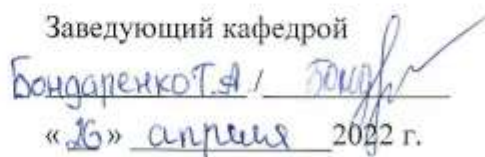 Заведующий кафедрой
Бондаренко Т.А /
«26» апреля 2022 г.